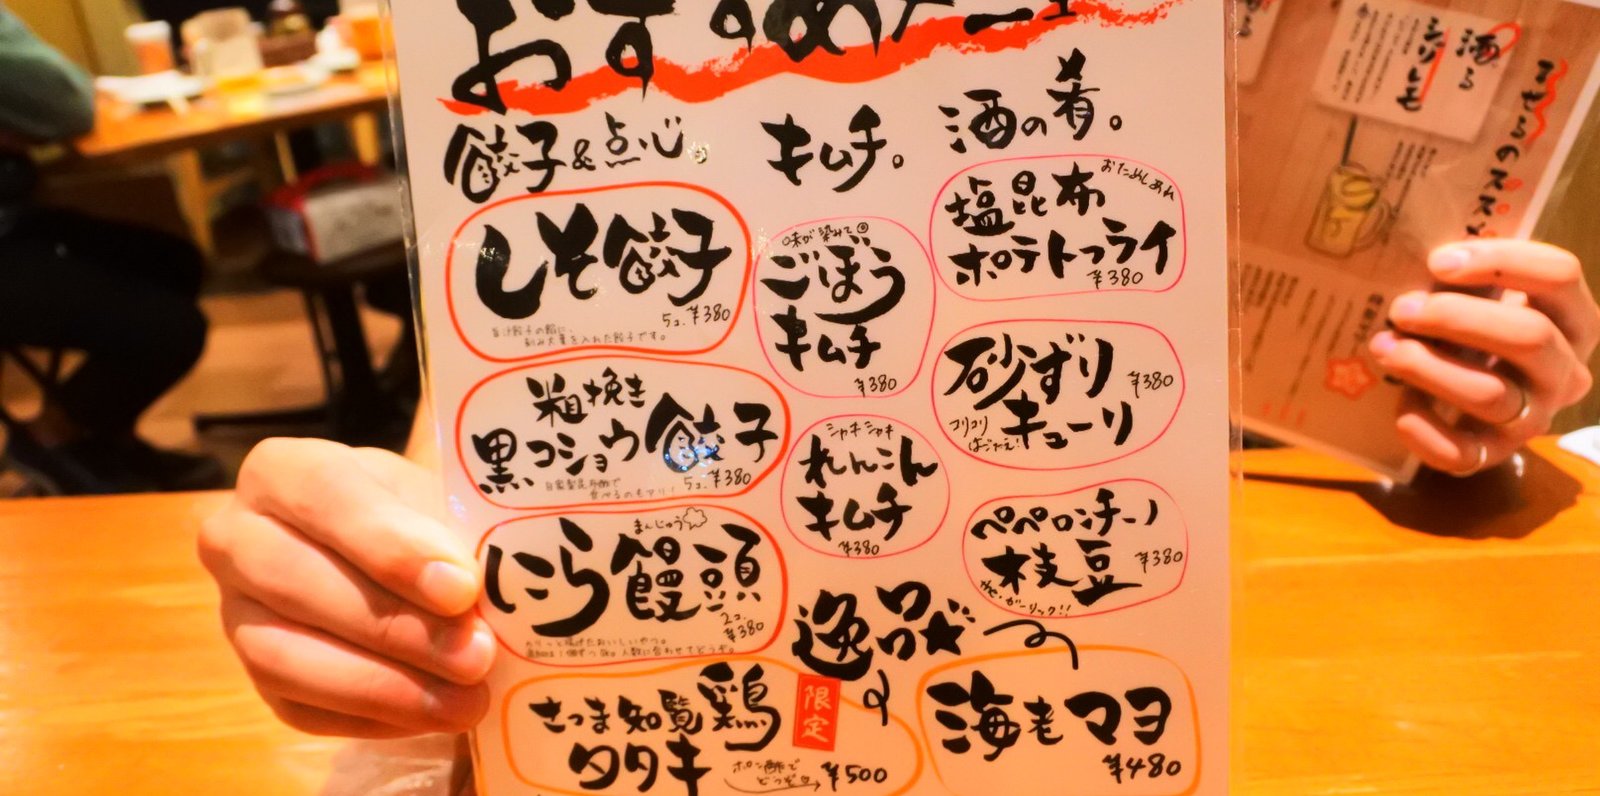 おすすめメニュー
餃子&点心。
しそ餃子
5コ. ¥380
刻み大葉を入れた餃子です。
粗挽き
黒コショウ餃子
5コ. ¥380
自家製昆布酢で
食べるのもアリ!
まんじゅう
にら饅頭
2コ.
¥380
カリッと揚げたおいしいやつ。
追加は1個ずつOK。人数に合わせてどうぞ。
キムチ。
味が染みて
ごぼう
キムチ
¥380
シャキシャキ
れんこん
キムチ
¥380
酒の肴。
おためしあれ
塩昆布
ポテトフライ
¥380
砂ずり
キューリ
¥380
コリコリ
はごたえ!
ペペロンチーノ
枝豆
¥380
ガーリック!!
逸品★
さつま知覧鶏
タタキ
限定
ポン酢で
どうぞ
¥500
海老マヨ
¥480